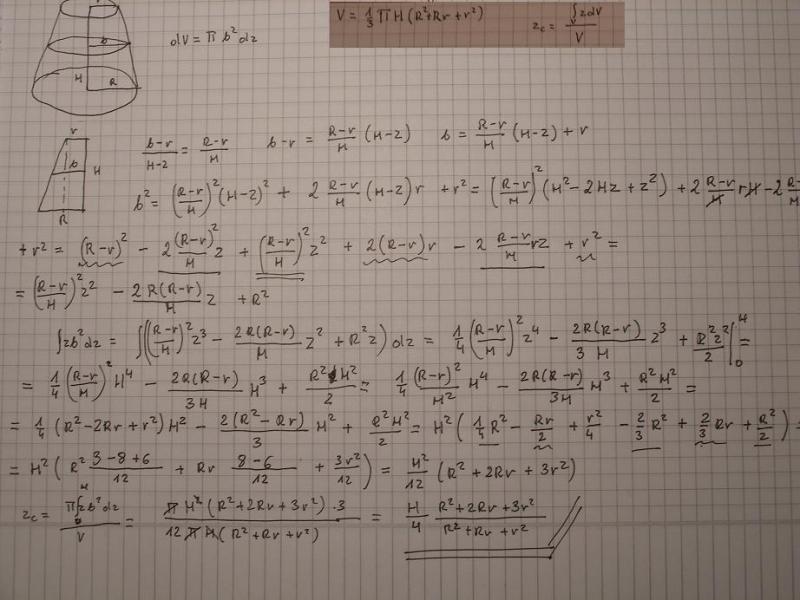 V = 1/3 π H (R² + Rr + r²)    z_c = ∫_V z dV / V
b
H
R
dV = π b² dz
r
b
H
R
(b-r)/(H-z) = (R-r)/H    b-r = (R-r)/H (H-z)    b = (R-r)/H (H-z) + r
b² = ((R-r)/H)² (H-z)² + 2 (R-r)/H (H-z) r + r² = ((R-r)/H)² (H² - 2Hz + z²) + 2 (R-r)/H rH - 2
+ r² = (R-r)² - 2 (R-r)²/H z + ((R-r)/H)² z² + 2(R-r)r - 2 (R-r)/H rz + r² =
= ((R-r)/H)² z² - 2R(R-r)/H z + R²
∫zb²dz = ∫(((R-r)/H)² z³ - 2R(R-r)/H z² + R²z) dz = 1/4 ((R-r)/H)² z⁴ - 2R(R-r)/(3H) z³ + R²z²/2 |₀^H =
= 1/4 ((R-r)/H)² H⁴ - 2R(R-r)/(3H) H³ + R²H²/2 = 1/4 (R-r)²/H² H⁴ - 2R(R-r)/(3H) H³ + R²H²/2 =
= 1/4 (R² - 2Rr + r²) H² - 2(R² - Rr)/3 H² + R²H²/2 = H² (1/4 R² - Rr/2 + r²/4 - 2/3 R² + 2/3 Rr + R²/2) =
= H² (R² (3-8+6)/12 + Rr (8-6)/12 + 3r²/12) = H²/12 (R² + 2Rr + 3r²)
z_c = π∫₀^H z b² dz / V = π H² (R² + 2Rr + 3r²) · 3 / (12 π H (R² + Rr + r²)) = H/4 (R² + 2Rr + 3r²)/(R² + Rr + r²)